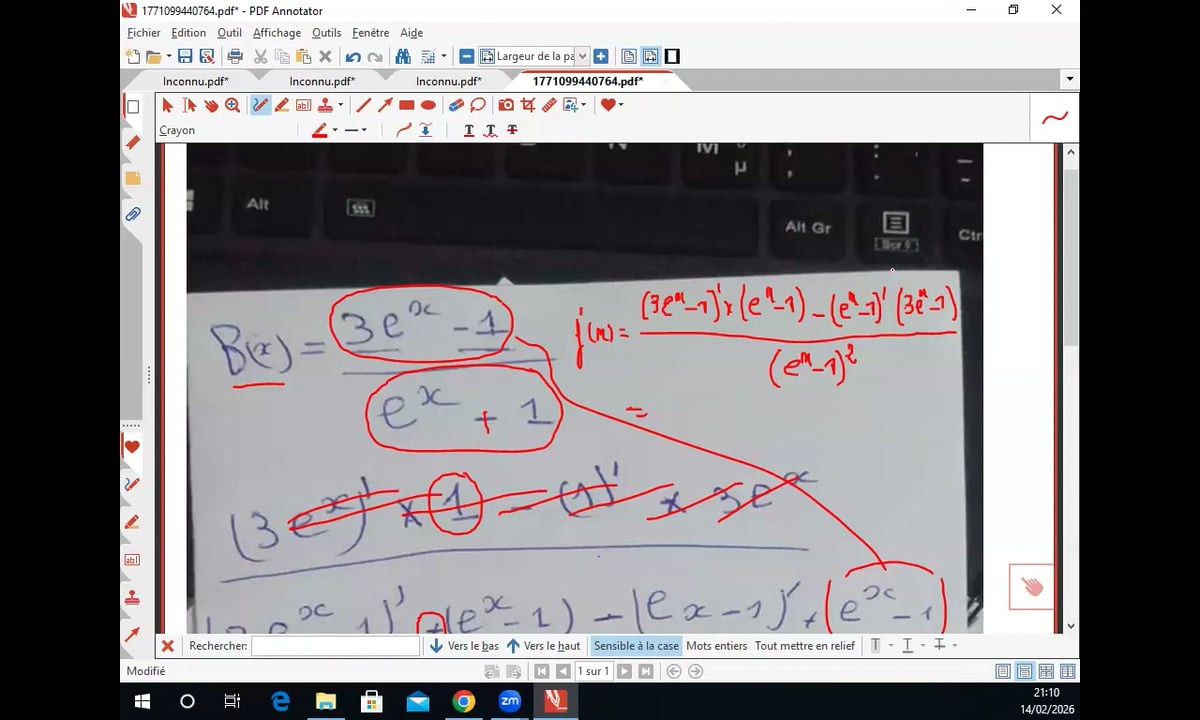 1771099440764.pdf* - PDF Annotator
Fichier Edition Outil Affichage Outils Fenêtre Aide
Largeur de la pa
Inconnu.pdf* Inconnu.pdf* Inconnu.pdf* 1771099440764.pdf*
Crayon
M
µ
Alt
Alt Gr
Ctr
B(x) = 3e^x - 1 / e^x + 1
f'(x) = (3e^x-1)' × (e^x-1) - (e^x-1)' (3e^x-1) / (e^x-1)^2
=
(3e^x)' × 1 - (1)' × 3e^x
1)' × (e^x - 1) - (ex - 1)' × (e^x - 1)
Rechercher: Vers le bas Vers le haut Sensible à la case Mots entiers Tout mettre en relief
Modifié
1 sur 1
21:10
14/02/2026